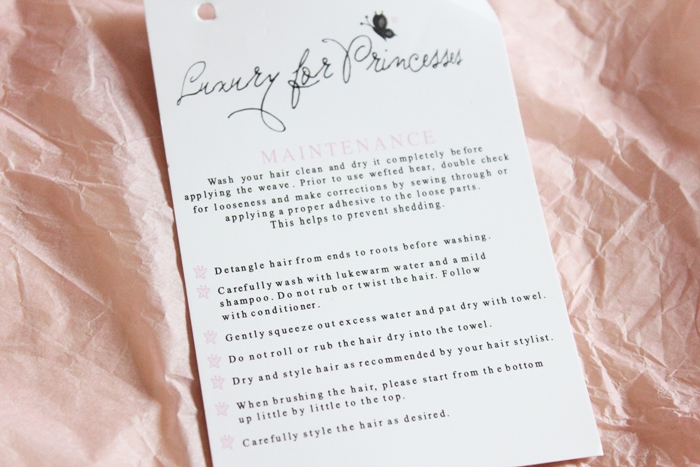 Luxury for Princesses
MAINTENANCE
Wash your hair clean and dry it completely before
applying the weave. Prior to use wefted hear, double check
for looseness and make corrections by sewing through or
applying a proper adhesive to the loose parts.
This helps to prevent shedding.
Detangle hair from ends to roots before washing.
Carefully wash with lukewarm water and a mild
shampoo. Do not rub or twist the hair. Follow
with conditioner.
Gently squeeze out excess water and pat dry with towel.
Do not roll or rub the hair dry into the towel.
Dry and style hair as recommended by your hair stylist.
When brushing the hair, please start from the bottom
up little by little to the top.
Carefully style the hair as desired.